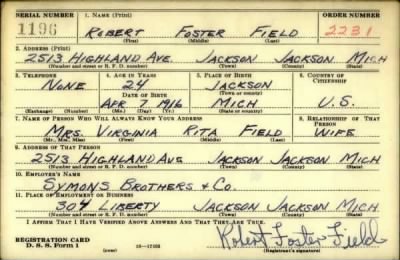 SERIAL NUMBER 1. NAME (Print) ORDER NUMBER
1196 ROBERT FOSTER FIELD 2231
(First) (Middle) (Last)
2. ADDRESS (Print)
2513 HIGHLAND AVE. JACKSON JACKSON MICH
(Number and street or R. F. D. number) (Town) (County) (State)
3. TELEPHONE 4. AGE IN YEARS 5. PLACE OF BIRTH 6. COUNTRY OF CITIZENSHIP
NONE 24 JACKSON
DATE OF BIRTH (Town or county)
APR 7 1916 MICH U.S.
(Exchange) (Number) (Mo.) (Day) (Yr.) (State or country)
7. NAME OF PERSON WHO WILL ALWAYS KNOW YOUR ADDRESS 8. RELATIONSHIP OF THAT PERSON
MRS. VIRGINIA RITA FIELD WIFE
(Mr., Mrs., Miss) (First) (Middle) (Last)
9. ADDRESS OF THAT PERSON
2513 HIGHLAND AVE JACKSON JACKSON MICH
(Number and street or R. F. D. number) (Town) (County) (State)
10. EMPLOYER'S NAME
SYMONS BROTHERS & CO.
11. PLACE OF EMPLOYMENT OR BUSINESS
304 LIBERTY JACKSON JACKSON MICH.
(Number and street or R. F. D. number) (Town) (County) (State)
I AFFIRM THAT I HAVE VERIFIED ABOVE ANSWERS AND THAT THEY ARE TRUE.
REGISTRATION CARD
D. S. S. Form 1 (over) Robert Foster Field
(Registrant's signature)